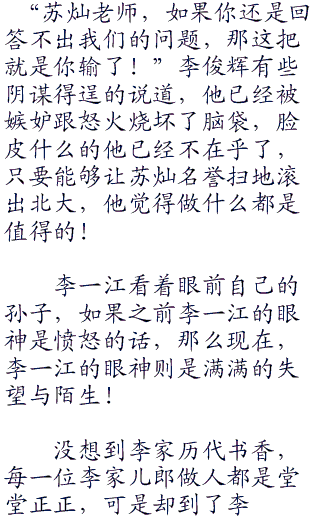 “苏灿老师，如果你还是回
答不出我们的问题，那这把
就是你输了！”李俊辉有些
阴谋得逞的说道，他已经被
嫉妒跟怒火烧坏了脑袋，脸
皮什么的他已经不在乎了，
只要能够让苏灿名誉扫地滚
出北大，他觉得做什么都是
值得的！
李一江看着眼前自己的
孙子，如果之前李一江的眼
神是愤怒的话，那么现在，
李一江的眼神则是满满的失
望与陌生！
没想到李家历代书香，
每一位李家儿郎做人都是堂
堂正正，可是却到了李